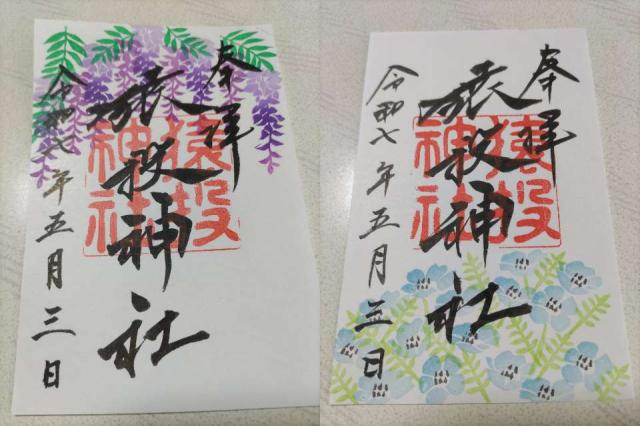 奉拝
猿投神社
猿投
神社
令和七年五月三日
奉拝
猿投神社
猿投
神社
令和七年五月三日